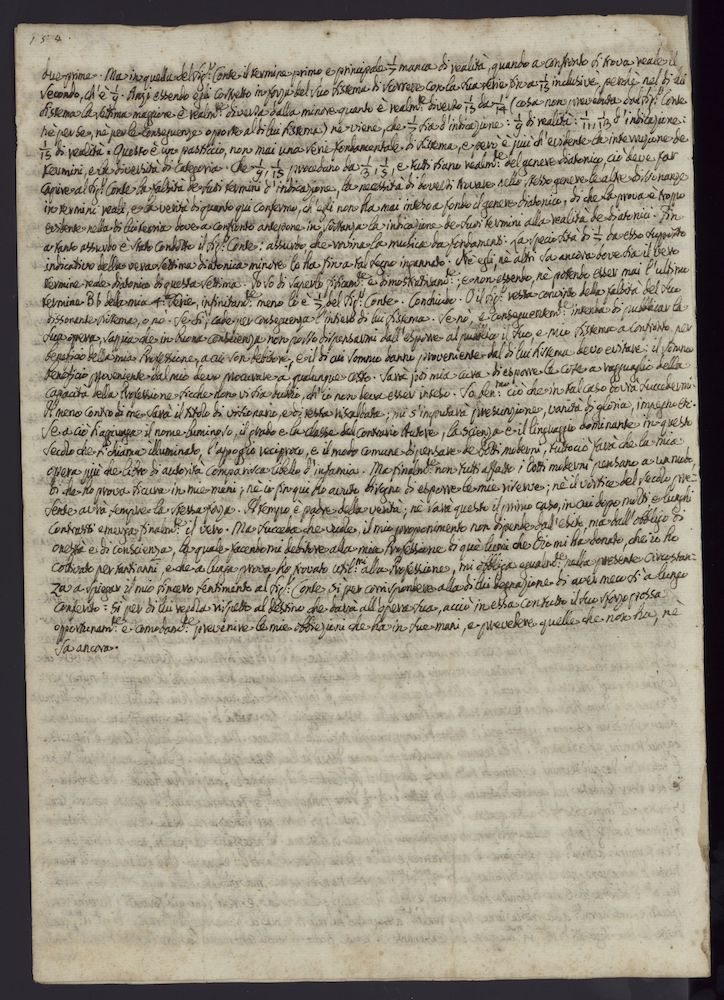 154.
due prime. Ma in quella del Sig.r Conte il termine primo e principale 1/7 manca di realità, quando a confronto si trova reale il
secondo, ch'è 1/9. Anzi essendo egli costretto in forza del suo sistema di scorrere con la sua serie fin a 1/15 inclusivè, perchè nel di lui
sistema la settima maggiore è realm.te diversa dalla minore quanto è realm.te diverso 1/15 da 1/14 (cosa non preveduta dal Sig.r Conte
nè per se, nè per le conseguenze opposte al di lui sistema) nè viene, che 1/7 sia d'indicazione: 1/9 di realità: 1/11, 1/13 d'indicazione:
1/15 di realità. Questo è un pasticcio, non mai una serie fondamentale di sistema, e però è quì ch'è evidente la interruzione de
termini, e la diversità di categoria. Che 1/9, 1/15 procedano da 1/3, 1/5, e tutti siano realm.te del genere diatonico, ciò deve far
capire al Sig.r Conte la falsità de suoi termini d'indicazione, la necessità di doversi trovare nello stesso genere le altre dissonanze
in termini reali, e la verità di quanto quì confermo, ch'egli non ha mai inteso a fondo il genere diatonico; di che la prova è troppo
evidente nella di lui teoria dove a confronto antepone in sostanza la indicazione de suoi termini alla realità de diatonici. Fin
a tanto assurdo è stato condotto il Sig.r Conte: assurdo, che rovina la musica da fondamenti. La speciosità di 1/7 da esso supposto
indicativo della vera settima diatonica minore lo ha fin a tal segno ingannato. Nè egli, nè altri sa ancora dove sia il vero
termine reale diatonico di questa settima. Io so di saperlo fisicam.te e dimostrativam.te; e non essendo, nè potendo esser mai l'ultimo
termine Bb della mia 4.ta serie, infinitam.te meno lo è 1/7 del Sig.r Conte. Concludo. O il Sig.r resta convinto della falsità del suo
dissonante sistema, o nò. Se sì, cade per conseguenza l'intiero di lui sistema. Se nò, e conseguentem.te intenda di pubblicar la
sua opera, sappia che in buona conscienza non posso dispensarmi dall'esporre al pubblico il suo e mio sistema a confronto per
beneficio della mia Professione, a cui son debitore, e il di cui sommo danno proveniente dal di lui sistema devo evitare: il sommo
beneficio proveniente dal mio devo procurare a qualunque costo. Sarà poi mia cura di esporre le cose a ragguaglio della
capacità della Professione sicche non vi sia dubbio, ch'io non deva esser inteso. So ben.mo ciò che in tal caso dovrà succedermi.
Almeno contro di me sarà il titolo di visionario, e di testa riscaldata; mi s'imputerà presunzione, vanità di gloria, impegno etc.
Se a ciò s'aggiunga il nome luminoso, il grado e la classe del contrario Autore, la scienza e il linguaggio dominante in questo
secolo che si chiama illuminato, l'appoggio reciproco, e il modo comune di pensare de Dotti moderni, tuttociò farà che la mia
opera più che esito di autorità comparisca libello d'infamia. Ma finalm.te non tutti affatto i Dotti moderni pensano a un modo,
di che ho prova sicura in mie mani; nè io fin quì ho avuto bisogno di esporre le mie riserve; nè il vortice del secolo pre-
sente avrà sempre la stessa forza. Il tempo è padre della verità; nè sarà questo il primo caso, in cui dopo molti e lunghi
contrasti emerga finalm.te il vero. Ma succeda che vuole, il mio proponimento non dipende dall'esito, ma dall'obbligo di
onestà e di conscienza, la quale facendomi debitore alla mia Professione di que lumi che Dio mi ha donato, che io ho
coltivato per tant'anni, e che a lunga prova ho trovato util.mi alla Professione, mi obbliga egualm.te nella presente circostan-
za a spiegar il mio sincero sentimento al Sig.r Conte, sì per corrispondere alla di lui degnazione di aver meco sì a lungo
conferito: sì per di lui regola rispetto al destino che darà all'opera sua, acciò in essa con tutto il suo sforzo possa
opportunam.te e comodam.te prevenire le mie obbiezioni che ha in sue mani, e prevedere quelle che non ha, nè
sa ancora.